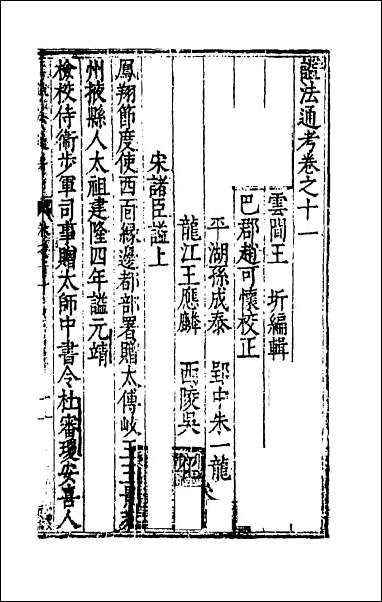 諡法通考卷之十一
雲間王 圻編輯
巴郡趙可懷校正
平湖孫成泰 郢中朱一龍
龍江王應麟 西陵吳
宋諸臣諡上
鳳翔節度使西面緣邊都部署贈太傅岐王王
州掖縣人太祖建隆四年諡元靖
檢校侍衛步軍司事贈太師中書令杜審瓊安喜人